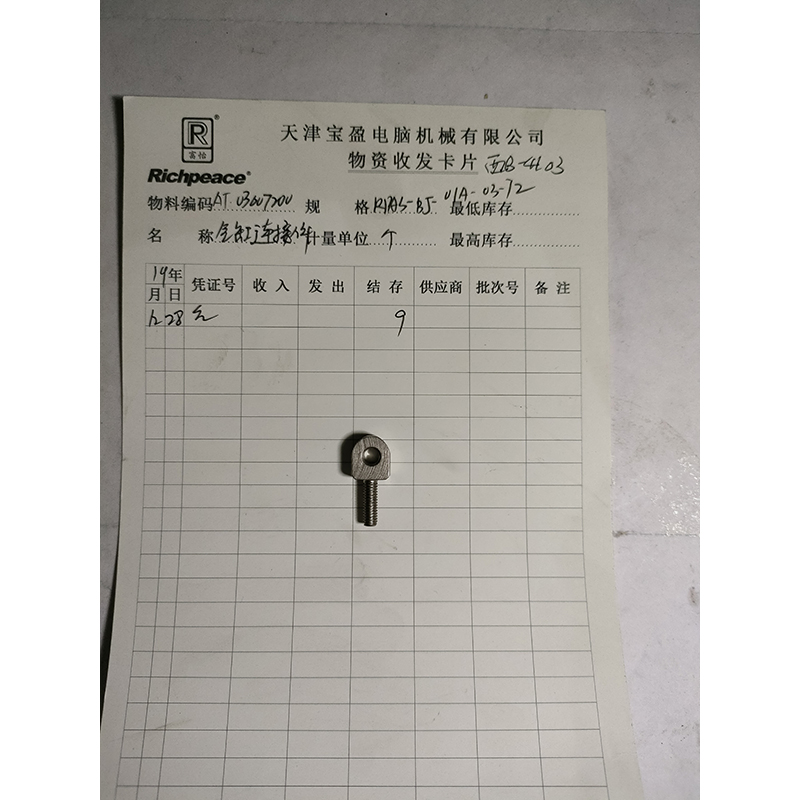 R®
富怡
Richpeace®
天津宝盈电脑机械有限公司
物资收发卡片 西B-4L03
01A-03-72
物料编码 AT 03607200 规 格 最低库存
名 称 连接件 计量单位 个 最高库存
19年 凭证号 收入 发出 结存 供应商 批次号 备注
月 日
12 28 9